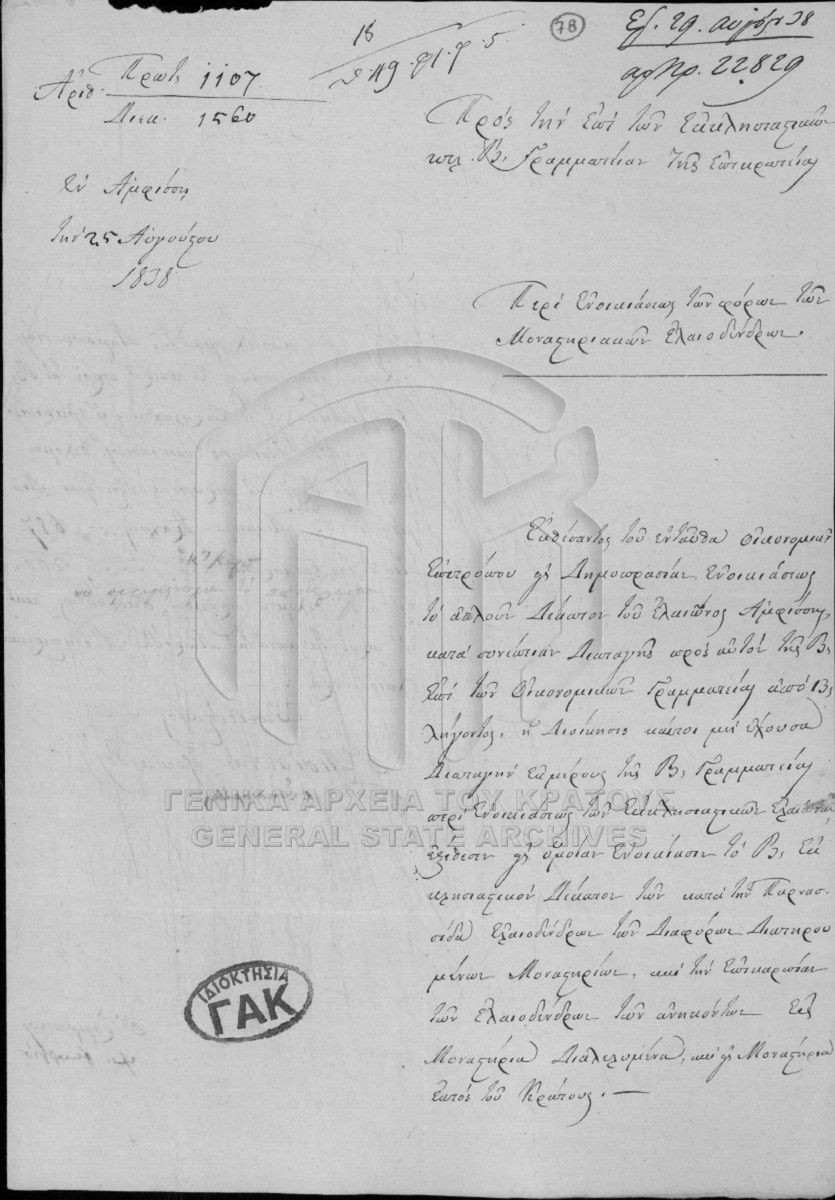 18
78
Ἀριθ. Πρωτ. 1107
Διεκ. 1560
Πρός τήν ἐπί τῶν Ἐκκλησιαστικῶν
κτλ. Β. Γραμματείαν τῆς Ἐπικρατείας
Ἐν Ἀμφίσσῃ
τήν 25 Αὐγούστου
1838
Περί ἐνοικιάσεως τῶν φόρων τῶν
Μοναστηριακῶν ἐλαιοδένδρων.
Ἐκθέσαντος τοῦ ἐνταῦθα Οἰκονομικοῦ
Ἐπιτρόπου εἰς Δημοπρασίαν ἐνοικιάσεως
τό Δέκατον τοῦ ἐλαιῶνος Ἀμφίσσης,
κατά συνέπειαν Διαταγῆς πρός αὐτόν τῆς Β.
ἐπί τῶν Οἰκονομικῶν Γραμματείας ἀπό 13
λήγοντος, ἡ Διοίκησις καίτοι μή ἔχουσα
Διαταγήν ἐκ μέρους τῆς Β. Γραμματείας
περί ἐνοικιάσεως τῶν Ἐκκλησιαστικῶν
ἐξέθεσεν εἰς ὁμοίαν ἐνοικίασιν τό Β. Ἐκ
κλησιαστικόν Δέκατον τῶν κατά τήν Παρνασ
σίδα ἐλαιοδένδρων τῶν Διαφόρων Διατηρου
μένων Μοναστηρίων, καί τήν ἐπικαρπίαν
τῶν ἐλαιοδένδρων τῶν ἀνηκόντων εἰς
Μοναστήρια Διαλελυμένα, καί εἰς Μοναστήρια
ἐκτός τοῦ Κράτους. —
ΓΕΝΙΚΑ ΑΡΧΕΙΑ ΤΟΥ ΚΡΑΤΟΥΣ
GENERAL STATE ARCHIVES
ΙΔΙΟΚΤΗΣΙΑ
ΓΑΚ